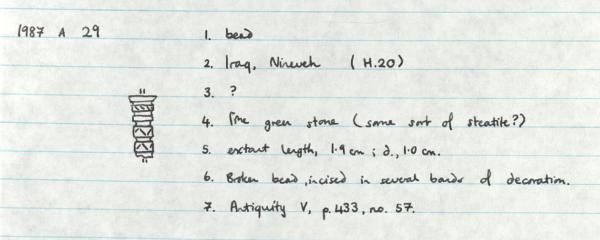 1987 A 29
1. bead
2. Iraq, Nineveh (H.20)
3. ?
4. Fine green stone (some sort of steatite?)
5. extant length, 1.9 cm; d., 1.0 cm.
6. Broken bead, incised in several bands of decoration.
7. Antiquity V, p. 433, no. 57.